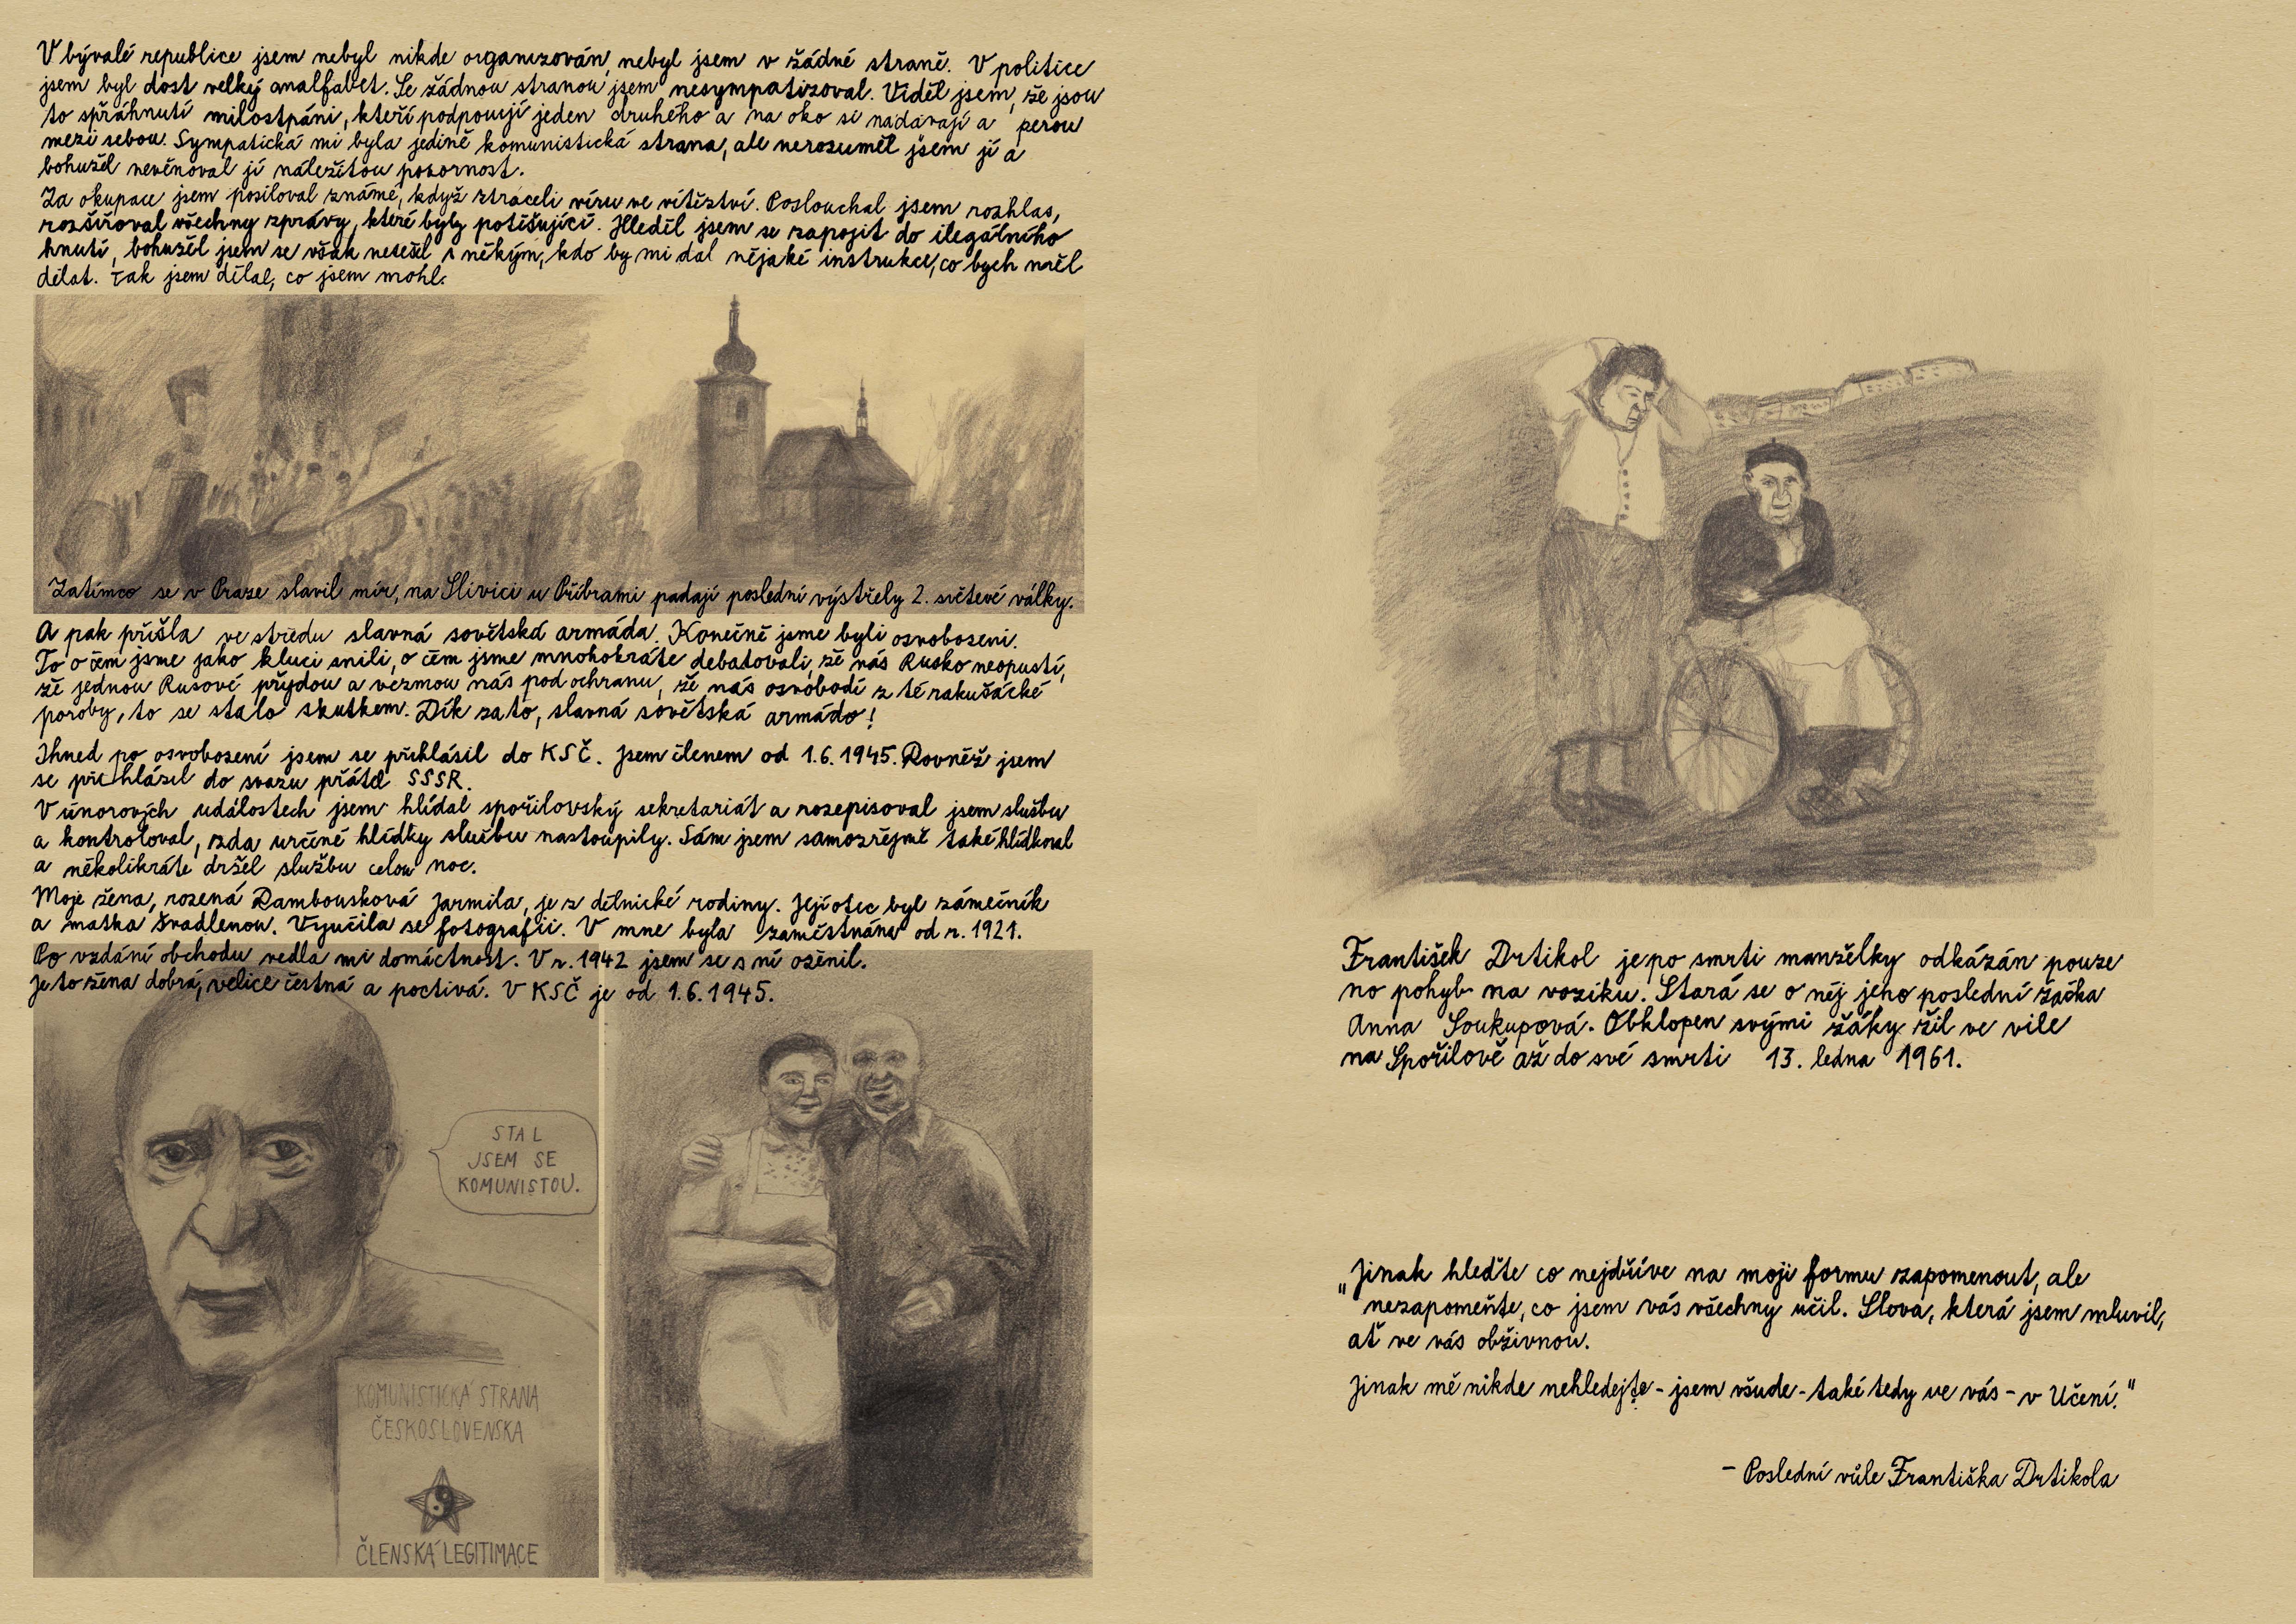 V bývalé republice jsem nebyl nikde organizován, nebyl jsem v žádné straně. V politice
jsem byl dost velký analfabet. Se žádnou stranou jsem nesympatizoval. Viděl jsem, že jsou
to spřáhnutí milostpáni, kteří podporují jeden druhého a na oko si nadávají a perou
mezi sebou. Sympatická mi byla jedině komunistická strana, ale nerozuměl jsem jí a
bohužel nevěnoval jí náležitou pozornost.
Za okupace jsem posiloval známé, když ztráceli víru ve vítězství. Poslouchal jsem rozhlas,
rozšiřoval všechny zprávy, které byly potěšující. Hleděl jsem se zapojit do ilegálního
hnutí, bohužel jsem se však nesešel s někým, kdo by mi dal nějaké instrukce, co bych měl
dělat. Tak jsem dělal, co jsem mohl.
Zatímco se v Praze slavil mír, na Slivici u Příbrami padají poslední výstřely 2. světové války.
A pak přišla ve středu slavná sovětská armáda. Konečně jsme byli osvobozeni.
To o čem jsme jako kluci snili, o čem jsme mnohokráte debatovali, že nás Rusko neopustí,
že jednou Rusové přijdou a vezmou nás pod ochranu, že nás osvobodí z té rakušácké
poroby, to se stalo skutkem. Dík za to, slavná sovětská armádo!
Ihned po osvobození jsem se přihlásil do KSČ. Jsem členem od 1.6.1945. Rovněž jsem
se přihlásil do svazu přátel SSSR.
V únorových událostech jsem hlídal spořilovský sekretariát a rozepisoval jsem službu
a kontroloval, zda určené hlídky službu nastoupily. Sám jsem samozřejmě také hlídkoval
a několikráte držel službu celou noc.
Moje žena, rozená Rambousková Jarmila, je z dělnické rodiny. Její otec byl zámečník
a matka švadlenou. Vyučila se fotografii. V mne byla zaměstnána od r. 1921.
Po vzdání obchodu vedla mi domácnost. V r. 1942 jsem se s ní oženil.
Je to žena dobrá, velice čestná a poctivá. V KSČ je od 1.6.1945.
STAL
JSEM SE
KOMUNISTOU.
KOMUNISTICKÁ STRANA
ČESKOSLOVENSKA
ČLENSKÁ LEGITIMACE
František Drtikol je po smrti manželky odkázán pouze
no pohyb na vozíku. Stará se o něj jeho poslední žačka
Anna Soukupová. Obklopen svými žáky žil ve vile
na Spořilově až do své smrti 13. ledna 1961.
„Jinak hleďte co nejdříve na moji formu zapomenout, ale
nezapomeňte, co jsem vás všechny učil. Slova, která jsem mluvil,
ať ve vás obživnou.
Jinak mě nikde nehledejte - jsem všude - také tedy ve vás - v Učení."
- Poslední vůle Františka Drtikola